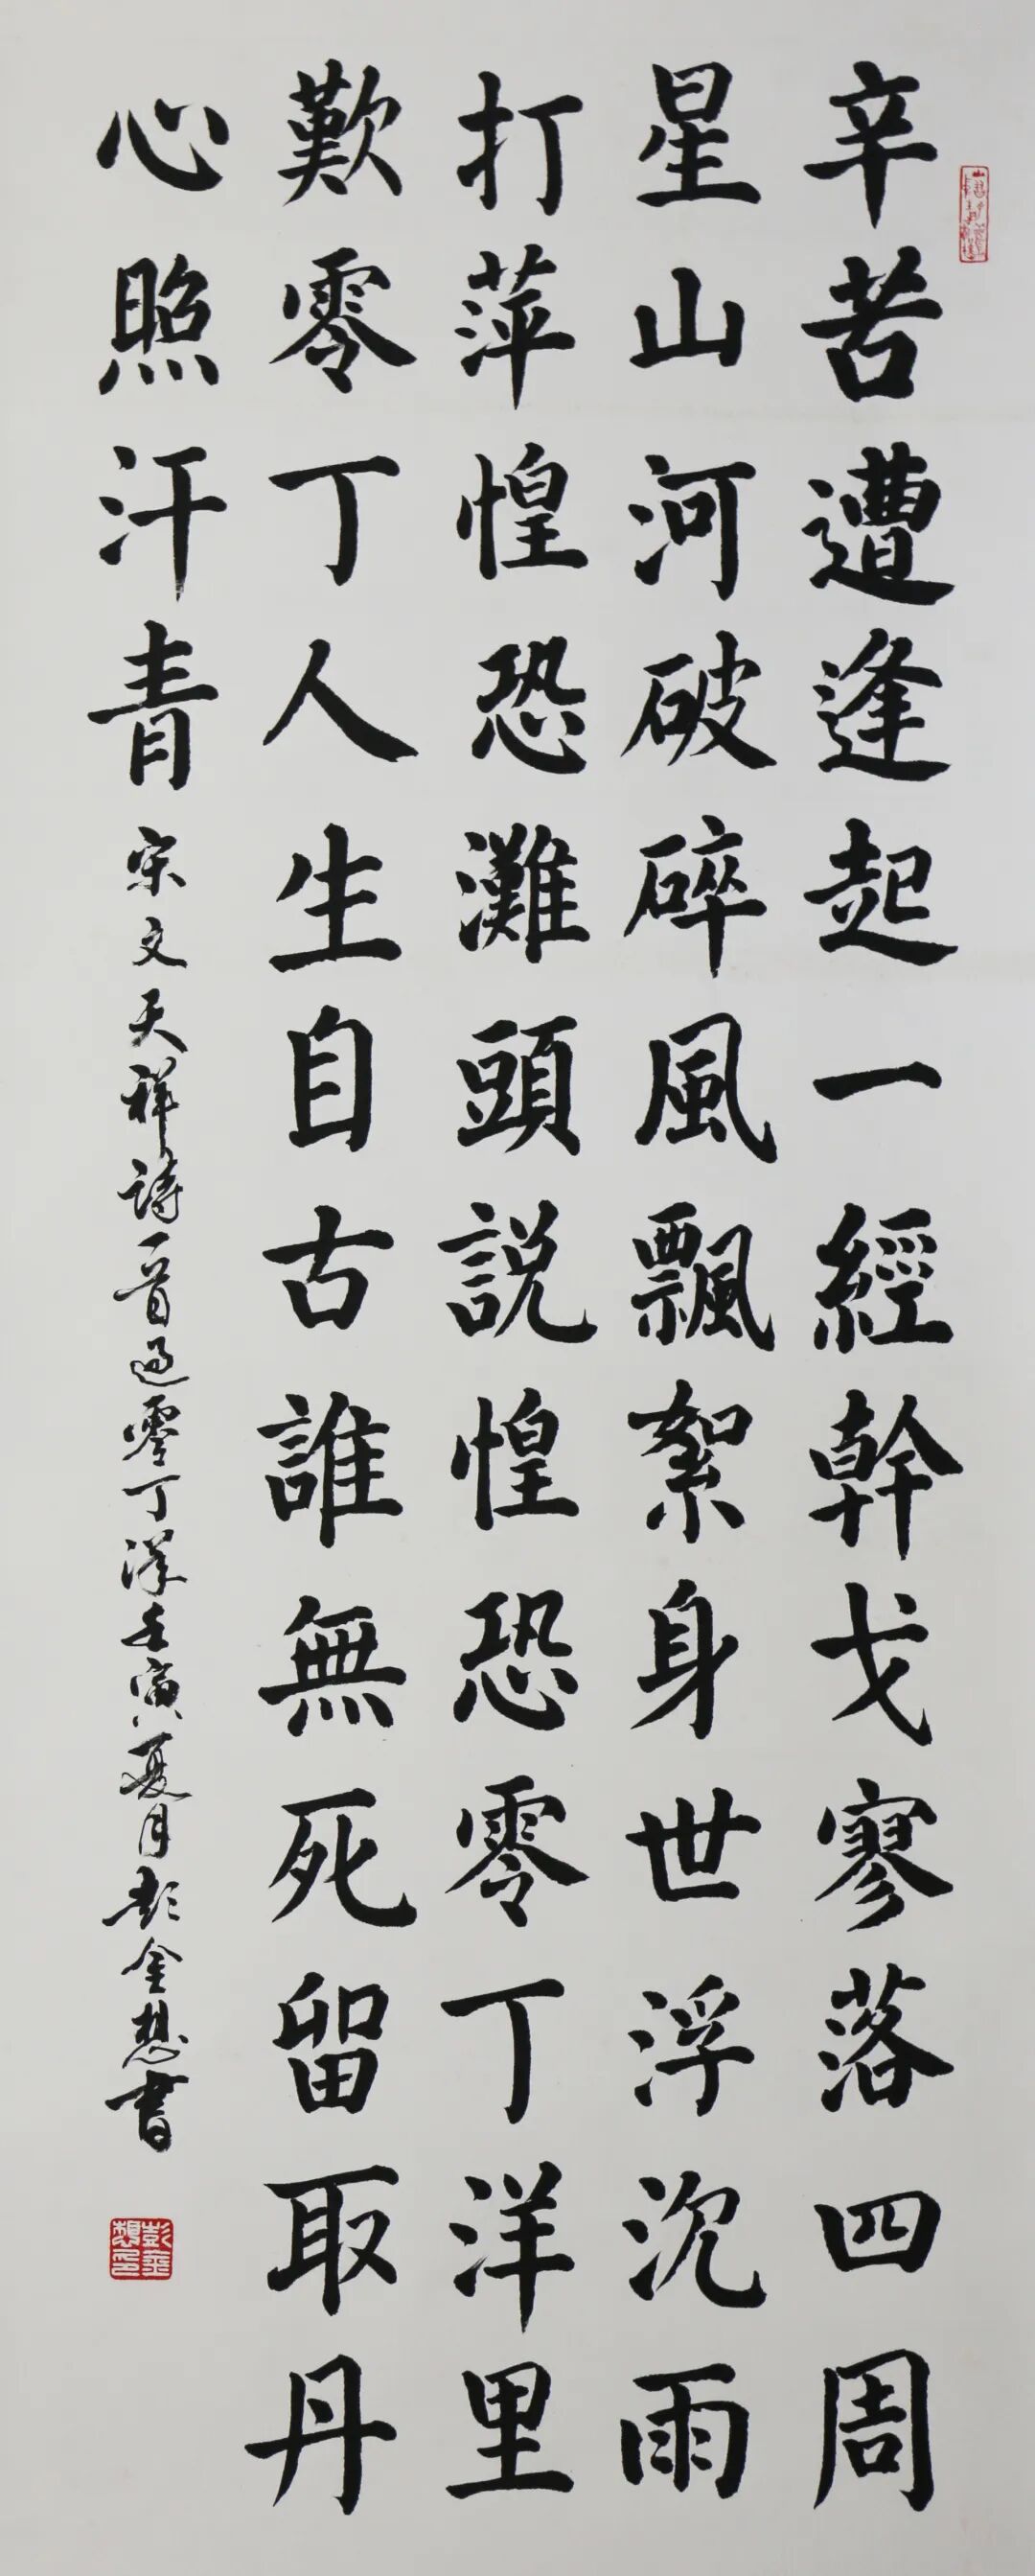 辛苦遭逢起一經幹戈寥落四周
星山河破碎風飄絮身世浮沉雨
打萍惶恐灘頭説惶恐零丁洋里
歎零丁人生自古誰無死留取丹
心照汗青
宋文天祥詩一首過零丁洋壬寅夏月彭金想書
彭金想印